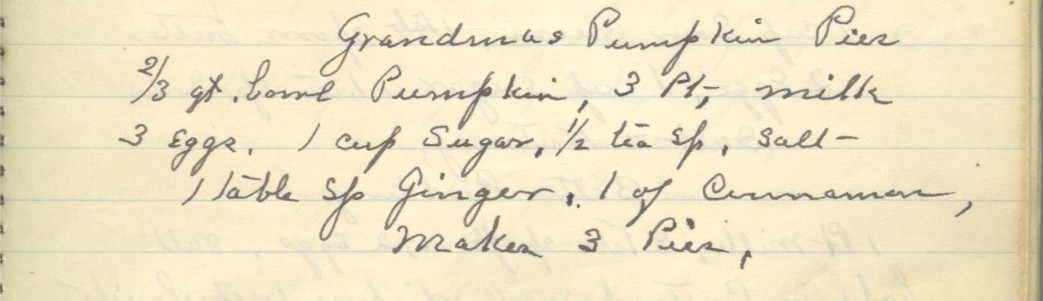 Grandmas Pumpkin Pies
2/3 qt. bowl Pumpkin, 3 Pt, milk
3 Eggs, 1 cup Sugar, 1/2 tea sp, salt
1 table sp Ginger, 1 of Cinnamon,
Makes 3 Pies,